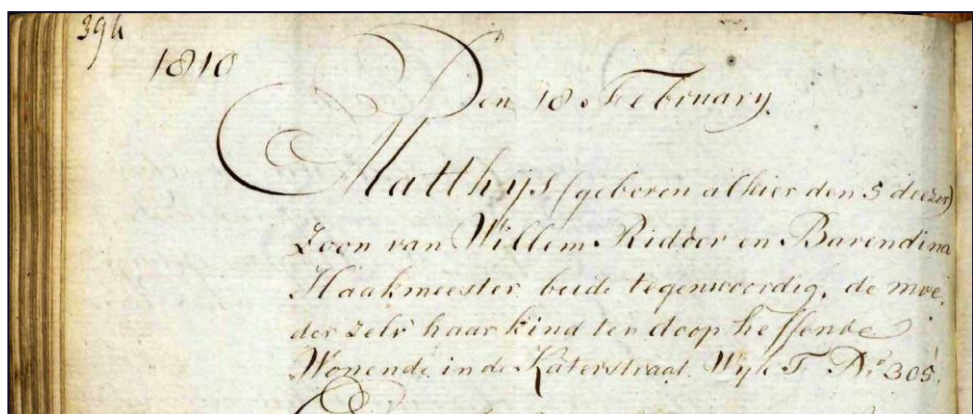 394
1810
Den 18 February.
Matthys (geboren alhier den 5 deezer)
Zoon van Willem Ridder en Barendina
Haakmeester beide tegenwoordig, de moe,
der zelv haar kind ten doop heffende
Wonende in de Katerstraat Wyk F N° 305.